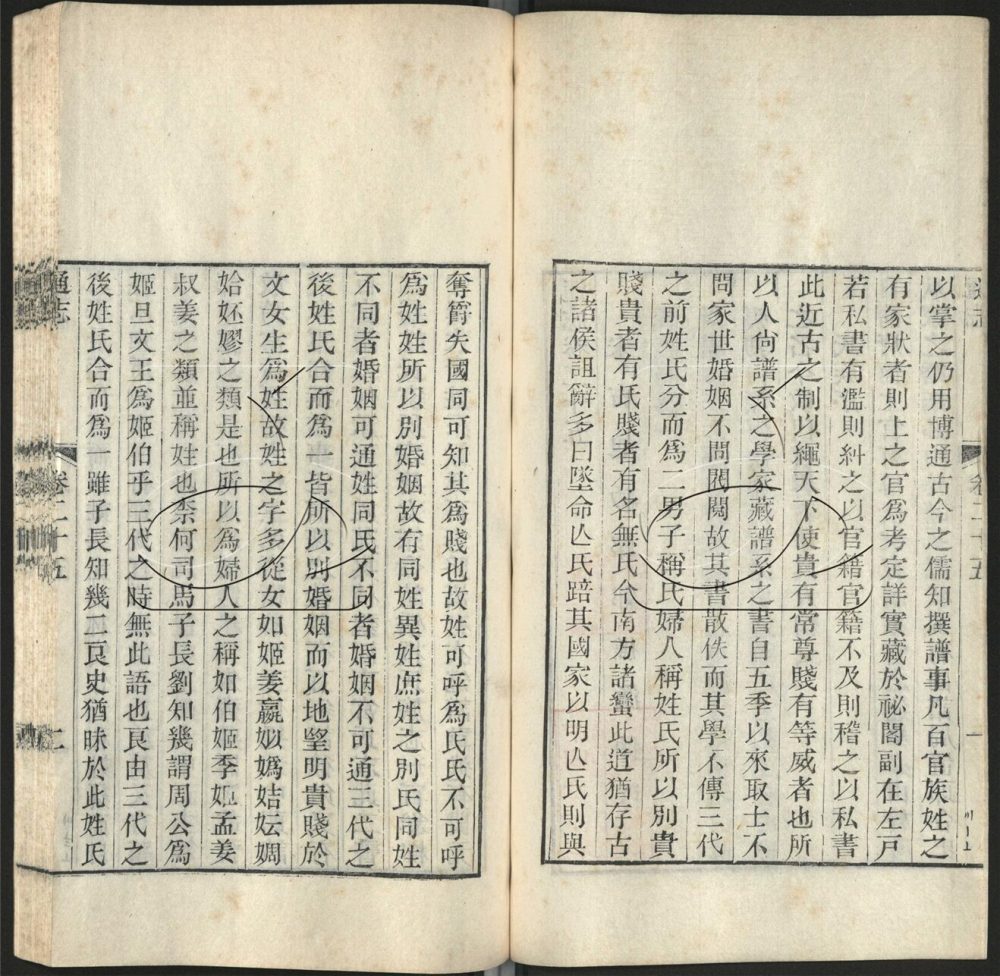 以掌之仍用博通古今之儒知撰譜事凡百官族姓之
有家狀者則上之官爲考定詳實藏於祕閣副在左戸
若私書有濫則糾之以官籍官籍不及則稽之以私書
此近古之制以繩天下使貴有常尊賤有等威者也所
以人尙譜系之學家藏譜系之書自五季以來取士不
問家世婚姻不問閥閱故其書散佚而其學不傳三代
之前姓氏分而爲二男子稱氏婦人稱姓氏所以別貴
賤貴者有氏賤者有名無氏今南方諸蠻此道猶存古
之諸侯詛辭多曰墜命亾氏踣其國家以明亾氏則與
奪爵失國同可知其爲賤也故姓可呼爲氏氏不可呼
爲姓姓所以別婚姻故有同姓異姓庶姓之別氏同姓
不同者婚姻可通姓同氏不同者婚姻不可通三代之
後姓氏合而爲一皆所以別婚姻而以地望明貴賤於
文女生爲姓故姓之字多從女如姬姜嬴姒嬀姞妘婤
姶妚嫪之類是也所以爲婦人之稱如伯姬季姬孟姜
叔姜之類並稱姓也柰何司馬子長劉知幾謂周公爲
姬旦文王爲姬伯乎三代之時無此語也良由三代之
後姓氏合而爲一雖子長知幾二良史猶昧於此姓氏
通志
卷二十五
二